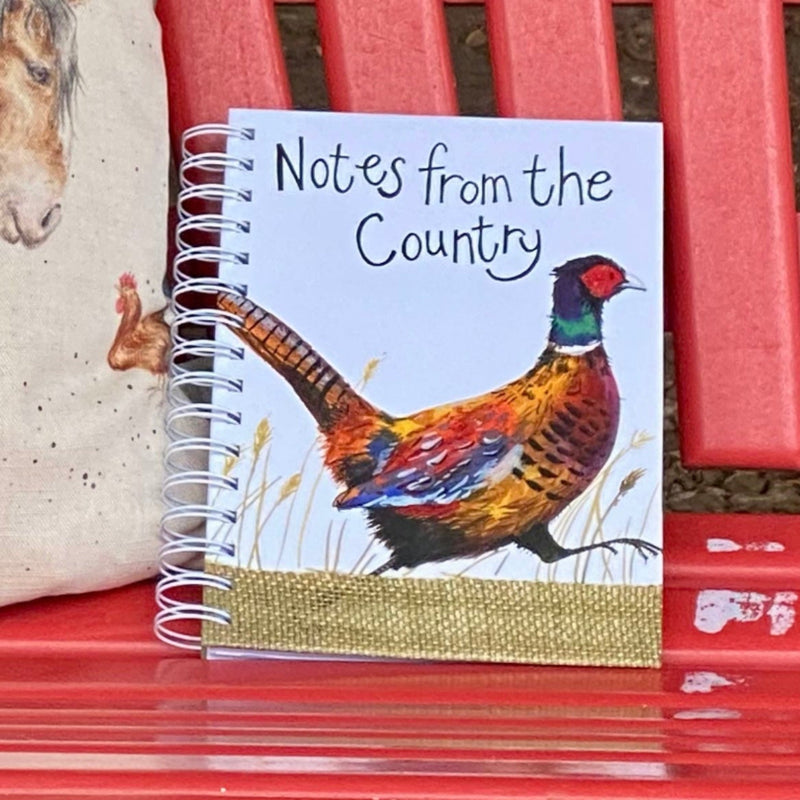 Notes from the
Country